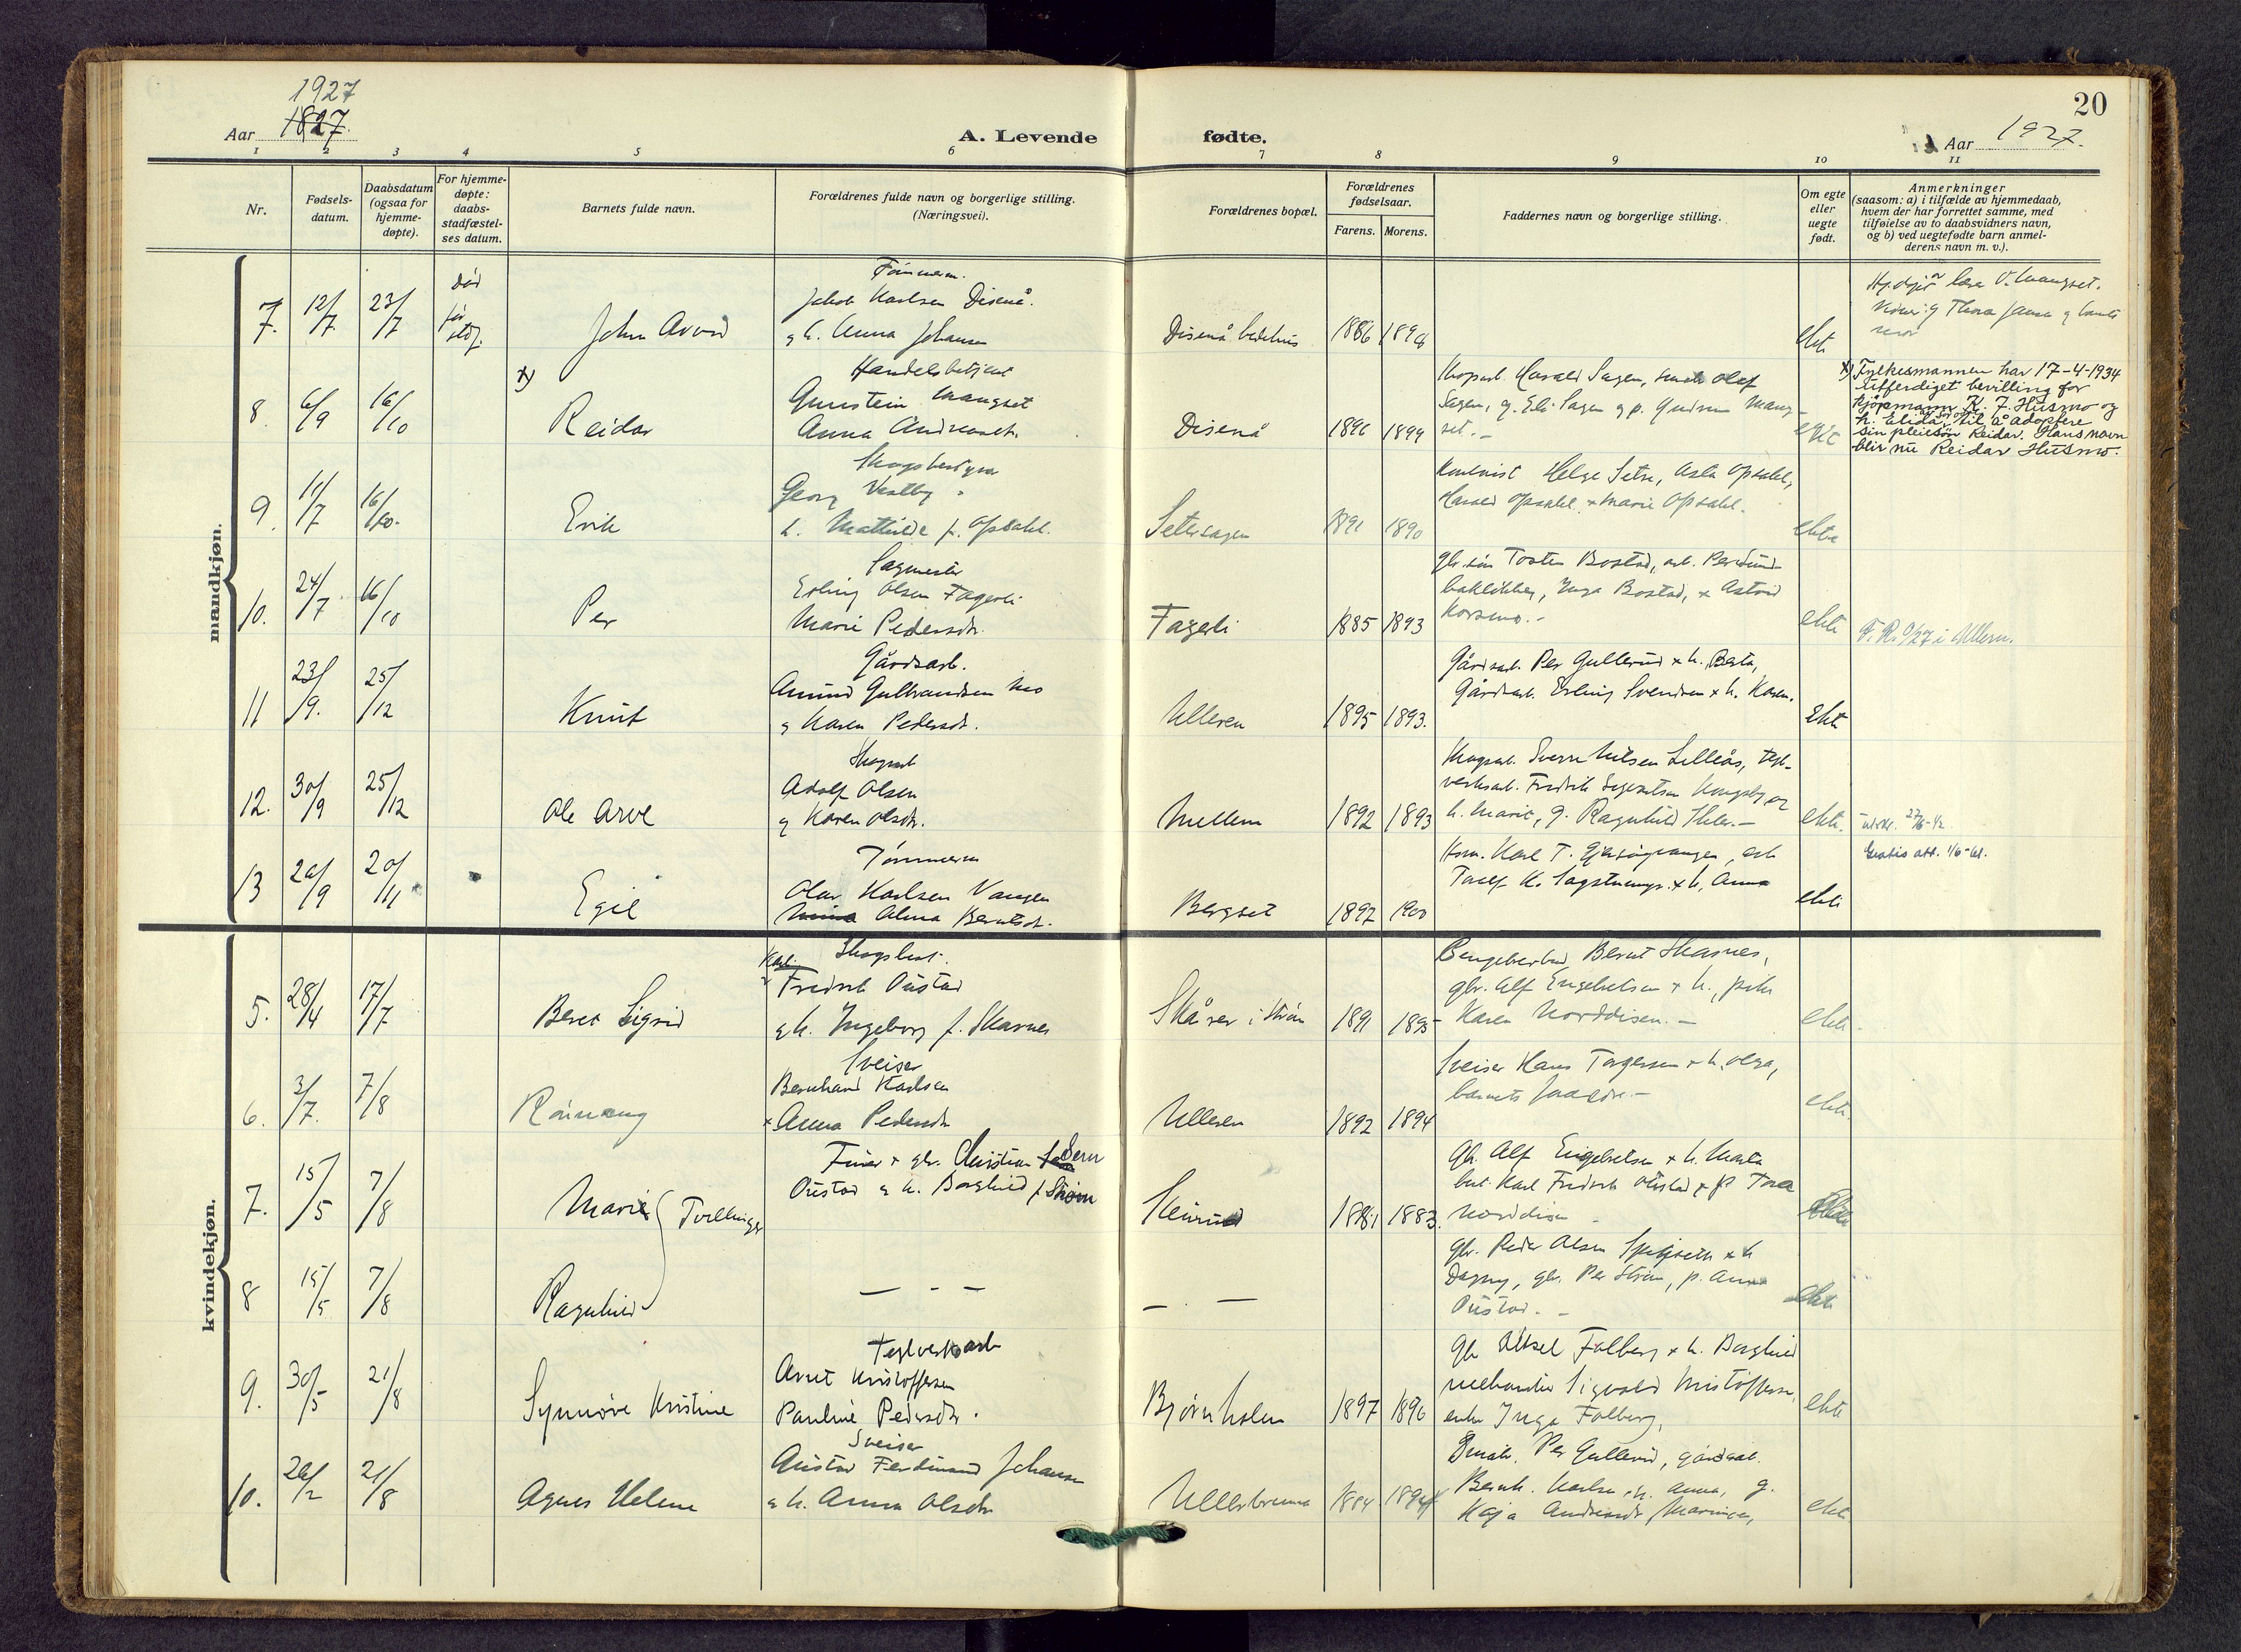 1927
Aar 1827.
A. Levende fødte.
20
Aar 1927.
1 2 3 4 5 6 7 8 9 10 11
Nr.
Fødsels-
datum.
Daabsdatum
(ogsaa for
hjemme-
døpte).
For hjemme-
døpte:
daabs-
stadfæstel-
ses datum.
Barnets fulde navn.
Forældrenes fulde navn og borgerlige stilling.
(Næringsvei).
Forældrenes bopæl.
Forældrenes
fødselsaar.
Farens. Morens.
Faddernes navn og borgerlige stilling.
Om egte
eller
uegte
født.
Anmerkninger
(saasom: a) i tilfælde av hjemmedaab,
hvem der har forrettet samme, med
tilføielse av to daabsvidners navn,
og b) ved uegtefødte barn anmel-
derens navn m. v.).
mandkjøn.
7. 12/7 23/7 Død før
John Arvid
Jakob Karlsen Disenå.
g h. Anna Johansen
Disenå bedehus 1886 1898 ekte
8. 6/9 16/10 x) Reidar
Handelsbetjent
Gunstein Mangset
Anna Andreasdt.
Disenå 1896 1899
Harald Sagen, Olaf
Sagen, g. Eli Sagen g p. Gudrun Mang-
set.-
x) Fylkesmannen har 17-4-1934
utferdiget bevilling for
kjøpmann K. F. Husmo og
h. Elida, til å adoptere
sin pleiesøn Reidar. Hans navn
blir nu Reidar Husmo.
9. 11/7 16/10. Erik
Skogbestyrer
Georg Vestby
h. Mathilde f. Opsahl.
Setersagen 1891 1890
Helge Setre, Asta Opsahl,
Harald Opsahl x Marie Opsahl.
ekte
10. 24/7 16/10 Per
Sagmester
Erling Olsen Fagerli
Marie Pedersdt.
Fagerli 1885 1893
gbr. søn Tosten Bostad,
Inga Bostad, x Astrid
Korsmo.-
ekte
11 23/9. 25/12 Knut
Gårdsarb.
Amund Gulbrandsen Mo
g Karen Pedersdt.
Ulleren 1895 1893.
Gårdsarb. Per Gullerud x h. Berta,
Gårdsarb. Erling Svendsen x h. Karen.
ekte
12. 30/9 25/12 Ole Arve
Skogsarb
Adolf Olsen
g Karen Olsdt.
Mellem 1892 1893
Skogsarb. Sverre Nilsen Lilleås, tegl-
verksarb. Fredrik Kongsby og
h. Marie, g. Ragnhild
ekte.
Gratis att. 1/6-61.
13 26/9 20/11 Egil
Tømmerm
Olav Karlsen Vangen
Alma Berntsdt.
Bergset 1892 1900
Karl T. arb
h. Anna
ekte
kvindekjøn.
5. 28/4 17/7 Beret Sigrid
Karl Skogsbest.
Fredrik Oustad
g h. Ingeborg f. Skarnes
Skårer i Strøm 1891 1895
Bernt Skarnes,
gbr. Alf Engebretsen x h., pike
Karen Norddisen.-
ekte
6. 3/7. 7/8 Rönnaug
Sveiser
Bernhard Karlsen
x Anna Pedersdt
Ulleren 1892 1894
Sveiser Hans Torgersen x h. Olga,
barnets foreldre.-
ekte
7. 15/5 7/8 Marie Tvillinger
gbr. Christian
Oustad g h. Borghild f. Strøm
1881 1883.
Gbr. Alf Engebretsen x h. Marta
Karl Fredrik Oustad x p Tora
Norddisen
8 15/5 7/8 Ragnhild
— - —
— . —
gbr. Peder Olsen x h
Dagny, gbr. Per Strøm, p. Anna
Oustad.-
ekte
9. 30/5 21/8 Synnöve Kristine
Teglverksarb
Arnt Kristoffersen
Pauline Pedersdt.
Bjørnholen 1897 1896
Gbr Aksel Folberg x h. Borghild
Sigvald Kristoffersen,
enke Inga Folberg,
ekte
10. 26/2 21/8 Agnes Helene
Sveiser
Gustav Ferdinand Johansen
g h. Anna Olsdtr
1884 1894
Per Gullerud, gårdsarb.
Bernh. Karlsen, h. Anna, g.
Kaja
ekte